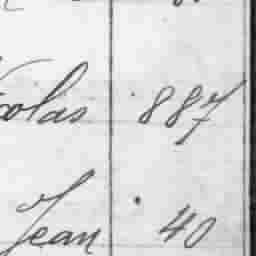 colas 887
Jean 40